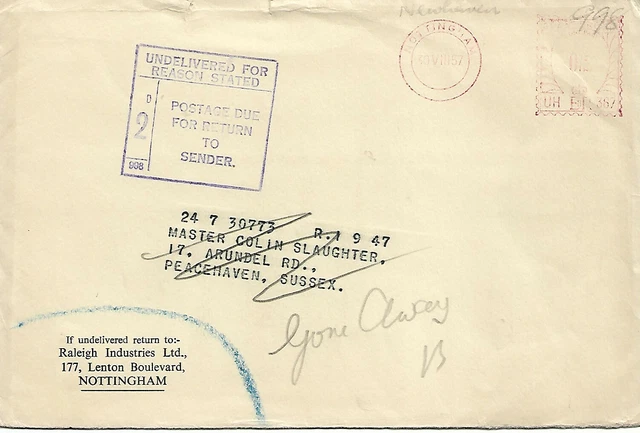 Newhaven
998
NOTTINGHAM
30 VII 57
UNDELIVERED FOR
REASON STATED
D
2
998
POSTAGE DUE
FOR RETURN
TO
SENDER.
24 7 30773 R.1 9 47
MASTER COLIN SLAUGHTER,
17. ARUNDEL RD.,
PEACEHAVEN, SUSSEX.
Gone Away
If undelivered return to:-
Raleigh Industries Ltd.,
177, Lenton Boulevard,
NOTTINGHAM